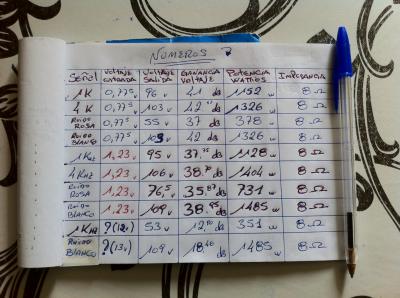 NUMEROS
SEÑAL VOLTAJE ENTRADA VOLTAJE SALIDA GANANCIA VOLTAJE POTENCIA WATTIOS IMPEDANCIA
1K 0,775 v 96 v 41 db 1152 w 8 Ω
4K 0,775 v 103 v 42 db 1326 w 8 Ω
RUIDO ROSA 0,775 v 55 v 37 db 378 w 8 Ω
RUIDO BLANCO 0,775 v 103 v 42 db 1326 w 8 Ω
1 KHz 1,23 v 95 v 37,75 db 1128 w 8 Ω
4 KHz 1,23 v 106 v 38,70 db 1404 w 8 Ω
RUIDO ROSA 1,23 v 76,5 v 35,87 db 731 w 8 Ω
RUIDO BLANCO 1,23 v 109 v 38,95 db 1485 w 8 Ω
1 KHz ?(12v) 53 v 12,90 db 351 w 8 Ω
RUIDO BLANCO ?(13v) 109 v 18,46 db 1485 w 8 Ω